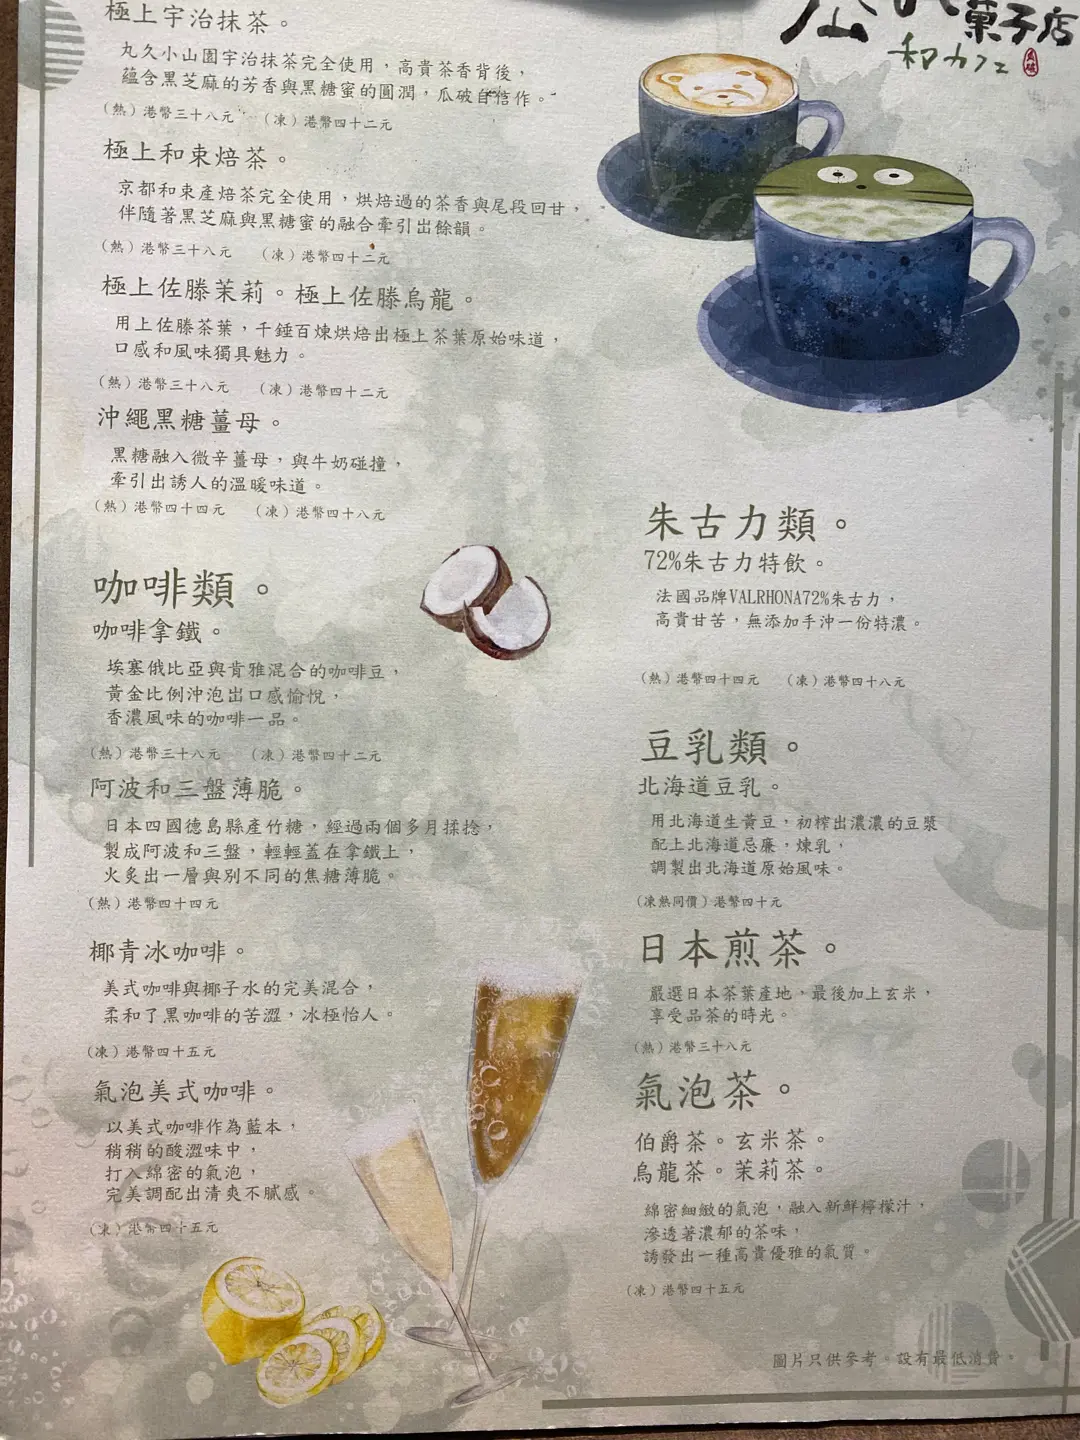 菓子店
和カフェ
極上宇治抹茶。
丸久小山園宇治抹茶完全使用，高貴茶香背後，
蘊含黑芝麻的芳香與黑糖蜜的圓潤，瓜破自信作。
（熱）港幣三十八元　（凍）港幣四十二元
極上和束焙茶。
京都和束產焙茶完全使用，烘焙過的茶香與尾段回甘，
伴隨著黑芝麻與黑糖蜜的融合牽引出餘韻。
（熱）港幣三十八元　（凍）港幣四十二元
極上佐滕茉莉。極上佐滕烏龍。
用上佐滕茶葉，千錘百煉烘焙出極上茶葉原始味道，
口感和風味獨具魅力。
（熱）港幣三十八元　（凍）港幣四十二元
沖繩黑糖薑母。
黑糖融入微辛薑母，與牛奶碰撞，
牽引出誘人的溫暖味道。
（熱）港幣四十四元　（凍）港幣四十八元
咖啡類。
咖啡拿鐵。
埃塞俄比亞與肯雅混合的咖啡豆，
黃金比例沖泡出口感愉悅，
香濃風味的咖啡一品。
（熱）港幣三十八元　（凍）港幣四十二元
阿波和三盤薄脆。
日本四國德島縣產竹糖，經過兩個多月揉捻，
製成阿波和三盤，輕輕蓋在拿鐵上，
火炙出一層與別不同的焦糖薄脆。
（熱）港幣四十四元
椰青冰咖啡。
美式咖啡與椰子水的完美混合，
柔和了黑咖啡的苦澀，冰極怡人。
（凍）港幣四十五元
氣泡美式咖啡。
以美式咖啡作為藍本，
稍稍的酸澀味中，
打入綿密的氣泡，
完美調配出清爽不膩感。
（凍）港幣四十五元
朱古力類。
72%朱古力特飲。
法國品牌VALRHONA72%朱古力，
高貴甘苦，無添加手沖一份特濃。
（熱）港幣四十四元　（凍）港幣四十八元
豆乳類。
北海道豆乳。
用北海道生黃豆，初榨出濃濃的豆漿
配上北海道忌廉，煉乳，
調製出北海道原始風味。
（凍熱同價）港幣四十元
日本煎茶。
嚴選日本茶葉產地，最後加上玄米，
享受品茶的時光。
（熱）港幣三十八元
氣泡茶。
伯爵茶。玄米茶。
烏龍茶。茉莉茶。
綿密細緻的氣泡，融入新鮮檸檬汁，
滲透著濃郁的茶味，
誘發出一種高貴優雅的氣質。
（凍）港幣四十五元
圖片只供參考。設有最低消費。